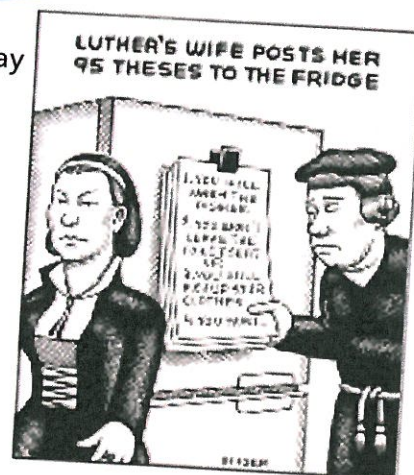 ay
LUTHER'S WIFE POSTS HER
95 THESES TO THE FRIDGE
1. YOU WILL
WASH THE
DISHES.
2. YOU WON'T
LEAVE THE
TOILET SEAT
UP.
3. YOU WILL
PICK UP YOUR
CLOTHES.
4. YOU WON'T